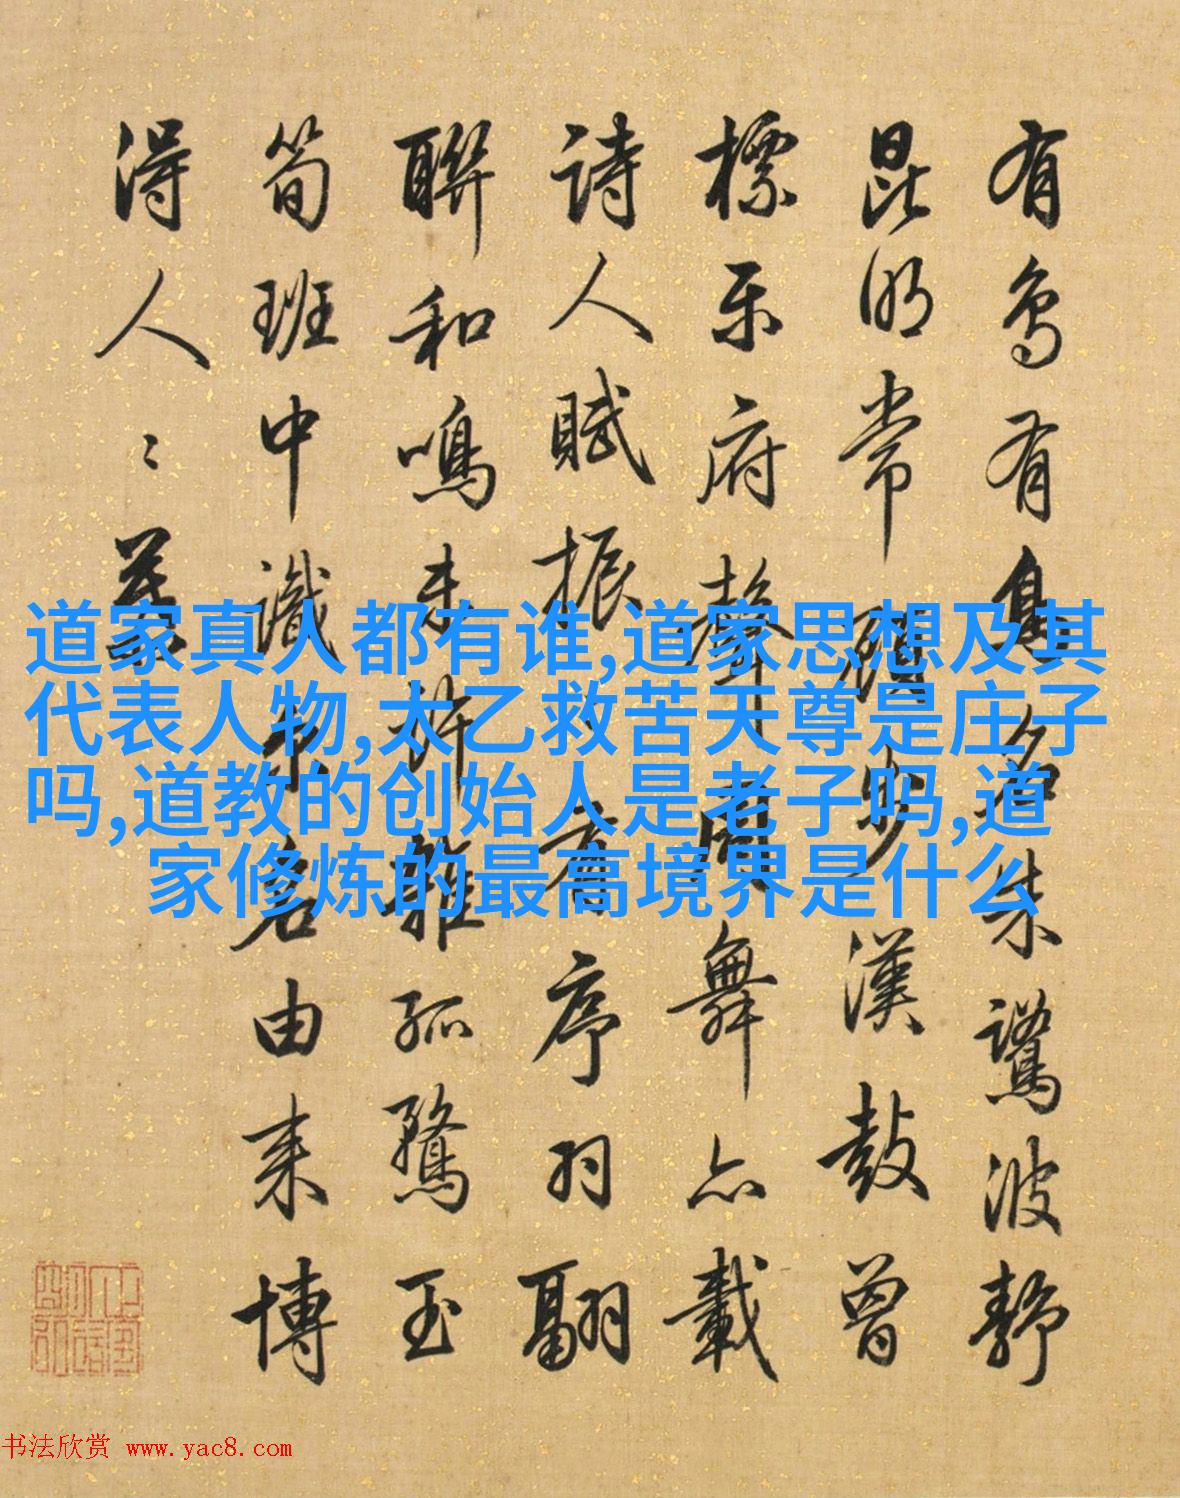 有鸟有名朱鷺波静
昆明常顧步漢鼓曾
標乐府聲舞亦載
诗人賦振序羽翮
聯和鳴未許雜孤鶩玉
筍班中識名由来博
得人〻慕
道家真人都有谁,道家思想及其
代表人物,太乙救苦天尊是庄子
吗,道教的创始人是老子吗,道
家修炼的最高境界是什么
书法欣赏 www.yac8.com